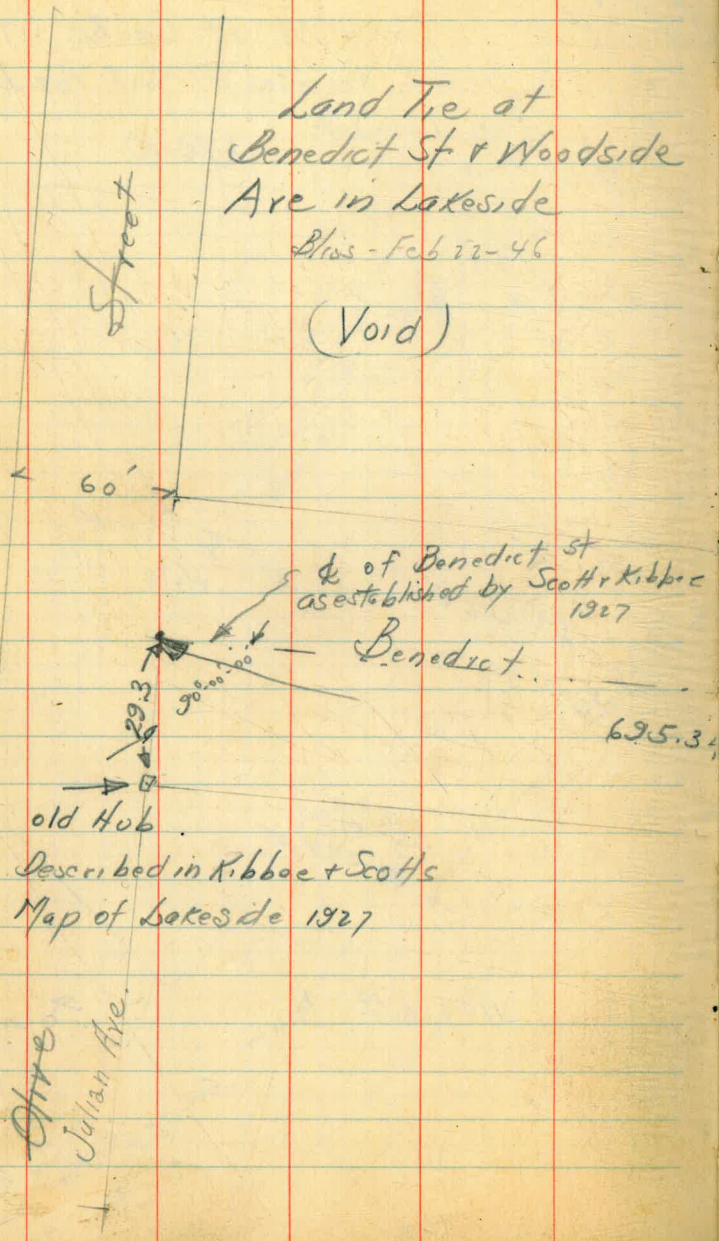 Land Tie at
Benedict St & Woodside
Ave in Lakeside
Bliss - Feb 22-46
(Void)
Street
60'
℄ of Benedict st
as established by Scott & Kibbee
1927
Benedict
90°-00'-00"
29.3
695.34
old Hub
Described in Kibbee & Scotts
Map of Lakeside 1927
Olive
Julian Ave.